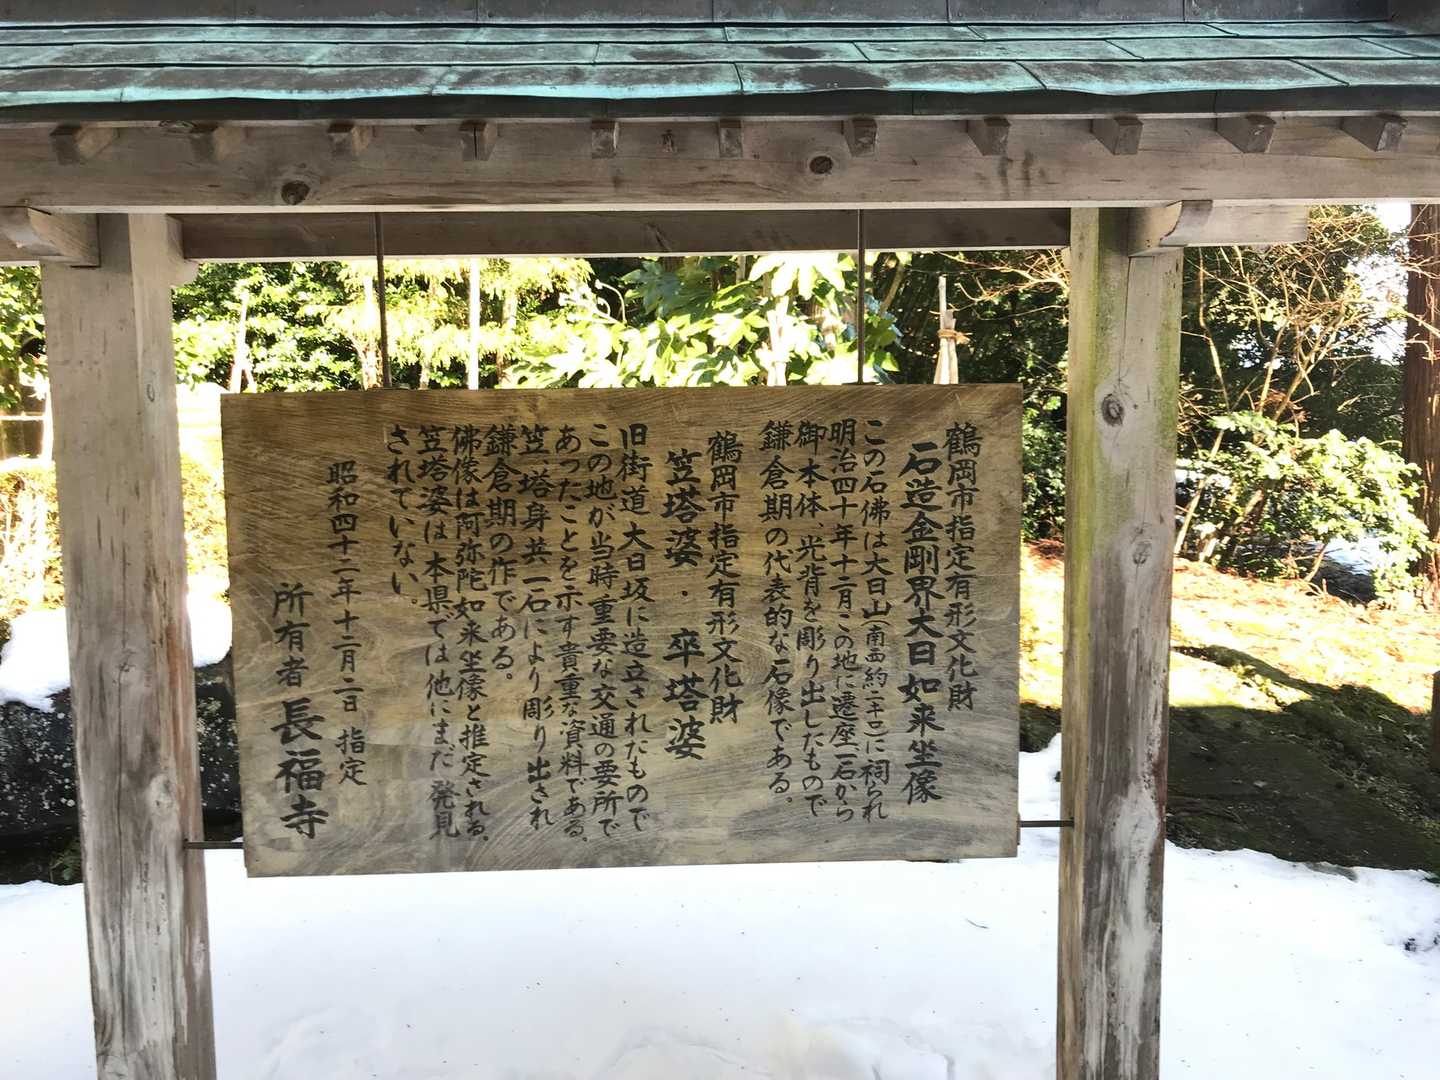 鶴岡市指定有形文化財
石造金剛界大日如来坐像
この石佛は大日山(南西約二キロ)に祠られ
明治四十年十二月この地に遷座一石から
御本体、光背を彫り出したもので
鎌倉期の代表的な石像である。
鶴岡市指定有形文化財
笠塔婆・卒塔婆
旧街道大日坂に造立されたもので
この地が当時重要な交通の要所で
あったことを示す貴重な資料である。
笠、塔身共一石により彫り出され
鎌倉期の作である。
佛像は阿弥陀如来坐像と推定される。
笠塔婆は本県では他にまだ発見
されていない。
昭和四十二年十二月二日 指定
所有者 長福寺